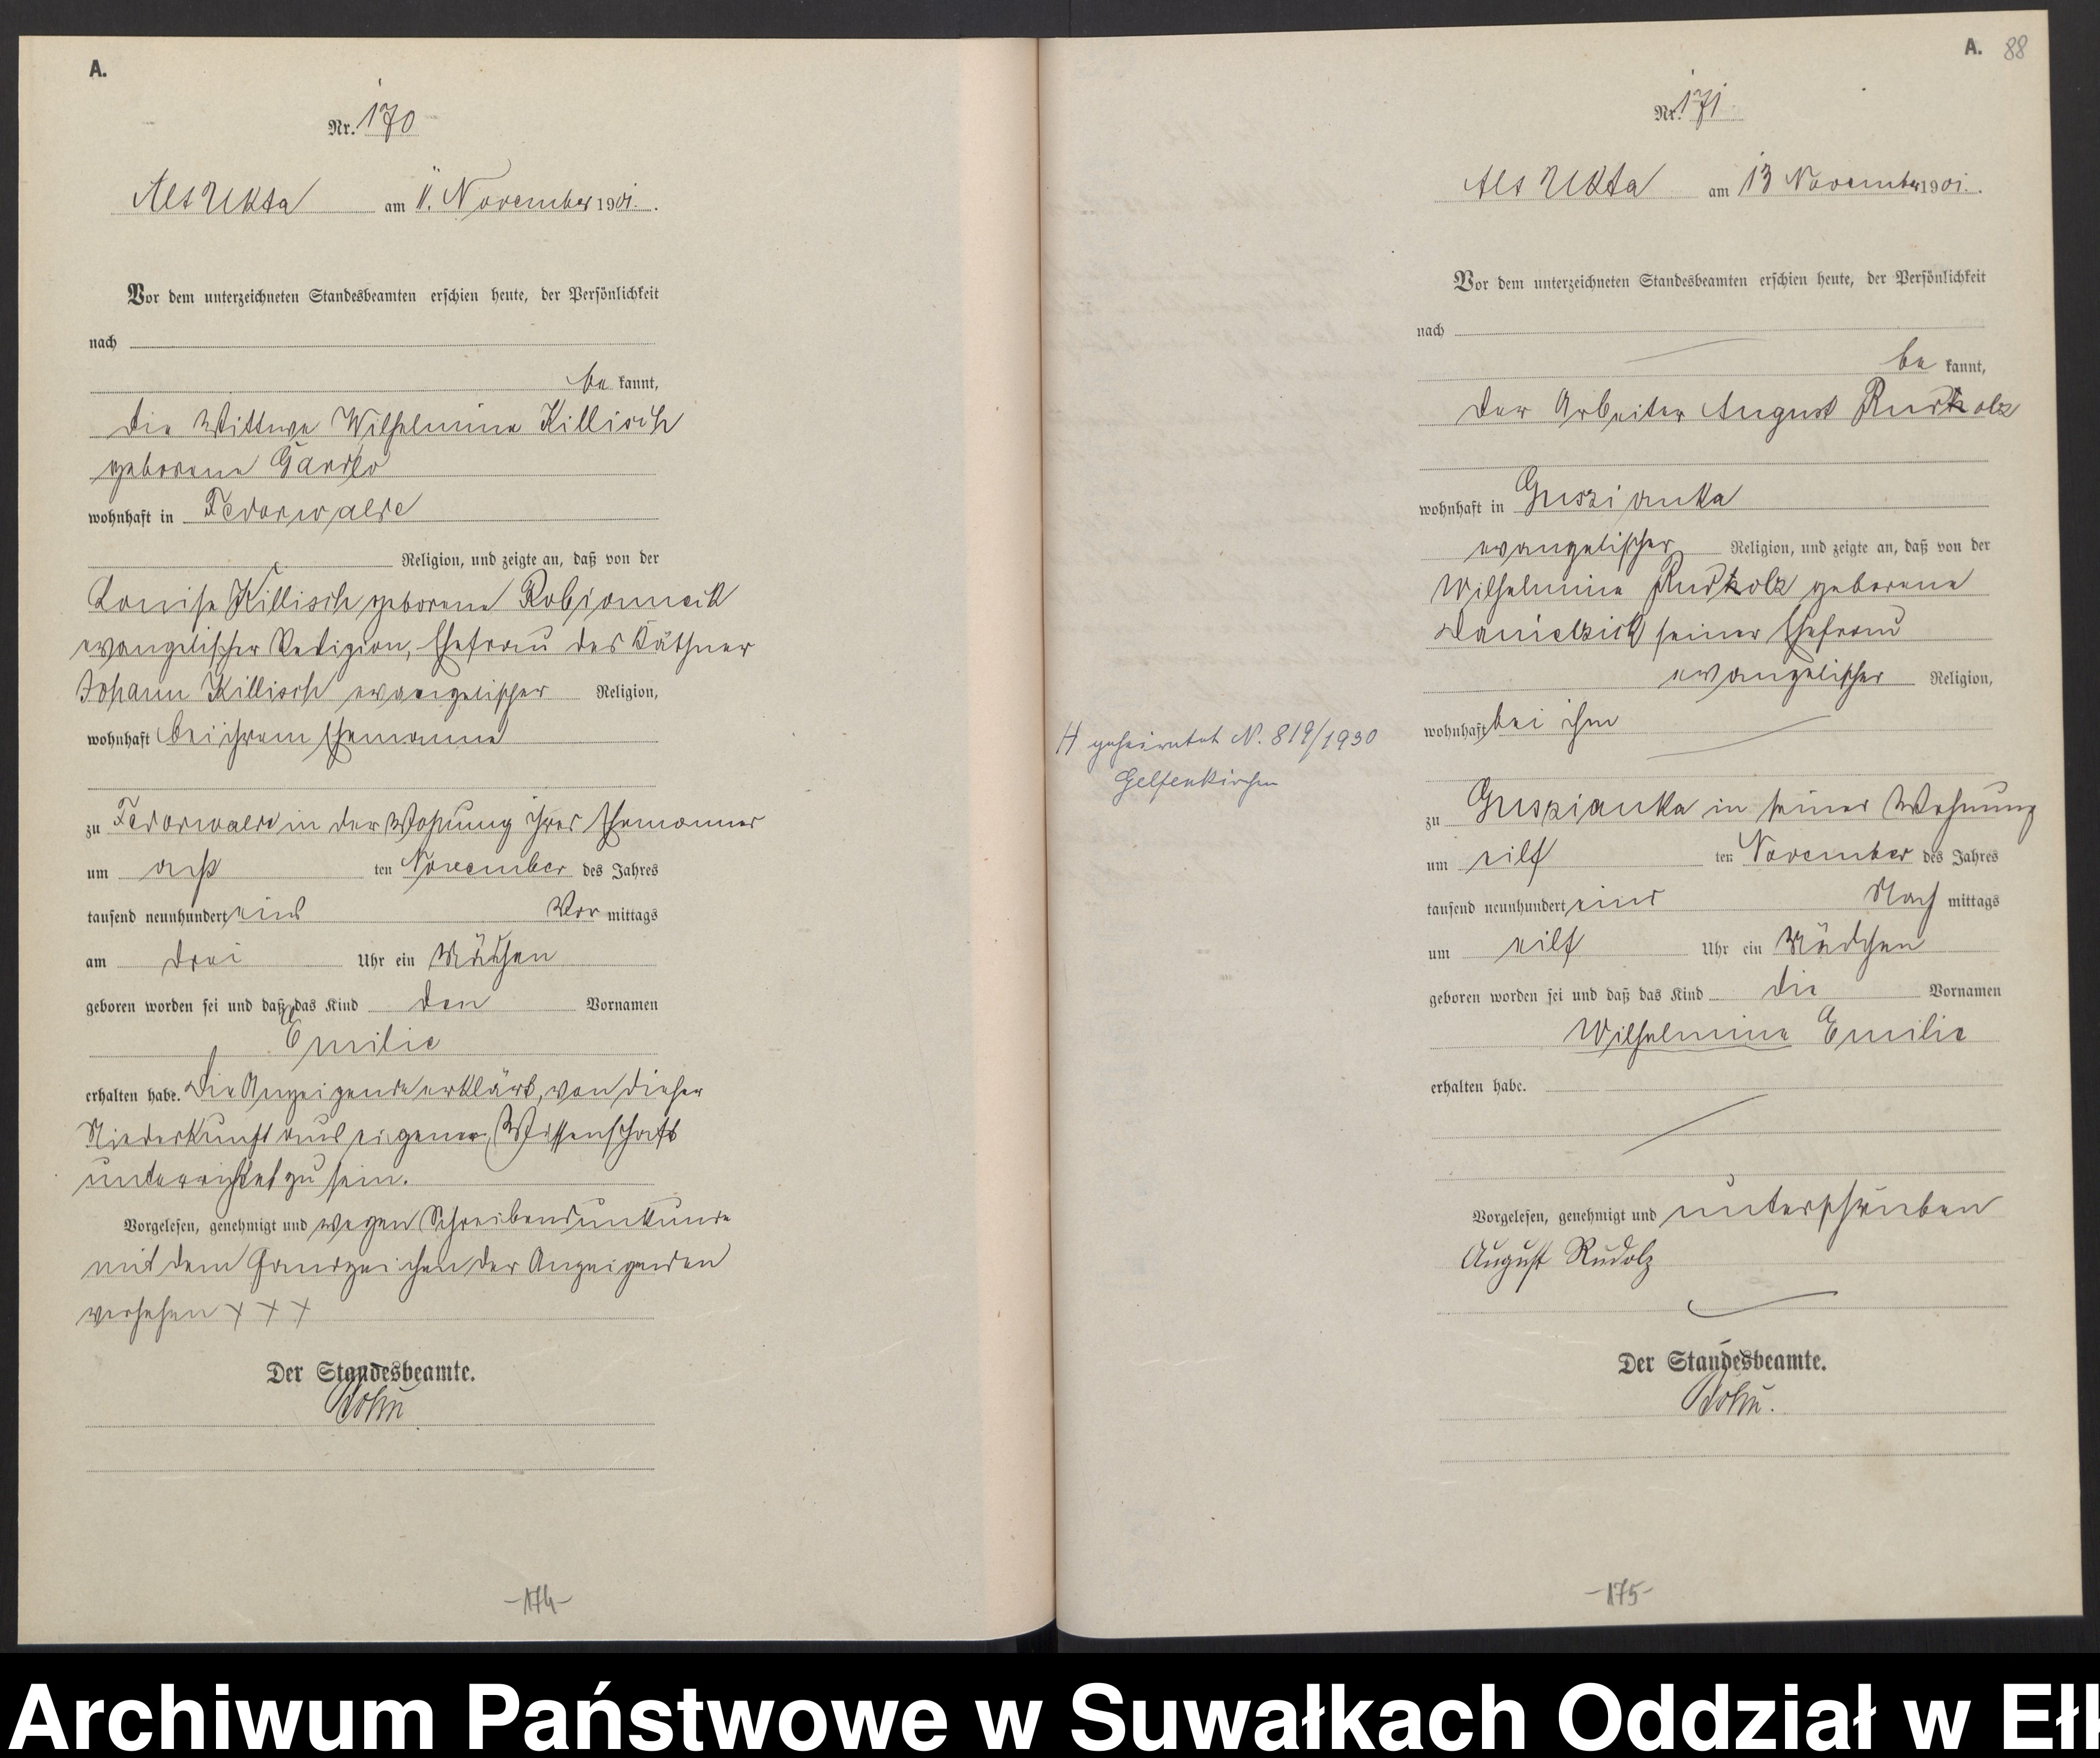 A.
Nr. 170
Alt Ukta am 11. November 1901.
Vor dem unterzeichneten Standesbeamten erschien heute, der Persönlichkeit
nach
be kannt,
die Wittwe Wilhelmine Killisch
geborene
wohnhaft in Fedorwalde
Religion, und zeigte an, daß von der
Louise Killisch geborene
evangelischer Religion, Ehefrau des Käthner
Johann Killisch evangelischer Religion,
wohnhaft bei ihrem Ehemanne
zu Fedorwalde in der Wohnung ihres Ehemannes
um acht ten November des Jahres
tausend neunhundert eins Vor mittags
am drei Uhr ein Mädchen
geboren worden sei und daß das Kind den Vornamen
Emilie
erhalten habe. Die Anzeigende erklärt, von dieser
Niederkunft aus eigener Wissenschaft
unterrichtet zu sein.
Vorgelesen, genehmigt und wegen Schreibensunkunde
mit dem Handzeichen der Anzeigenden
versehen + + +
Der Standesbeamte.
-174-
A. 88
Nr. 171
Alt Ukta am 13 November 1901.
Vor dem unterzeichneten Standesbeamten erschien heute, der Persönlichkeit
nach
be kannt,
der Arbeiter August
wohnhaft in Guszianka
evangelischer Religion, und zeigte an, daß von der
Wilhelmine geborene
Danielzick seiner Ehefrau
evangelischer Religion,
wohnhaft bei ihm
H geheiratet N. 819/1930
Gelsenkirchen
zu Guszianka in seiner Wohnung
um eilf ten November des Jahres
tausend neunhundert eins Nach mittags
um eilf Uhr ein Mädchen
geboren worden sei und daß das Kind die Vornamen
Wilhelmine Emilie
erhalten habe.
Vorgelesen, genehmigt und unterschrieben
August Rudolz
Der Standesbeamte.
-175-
Archiwum Państwowe w Suwałkach Oddział w Ełk